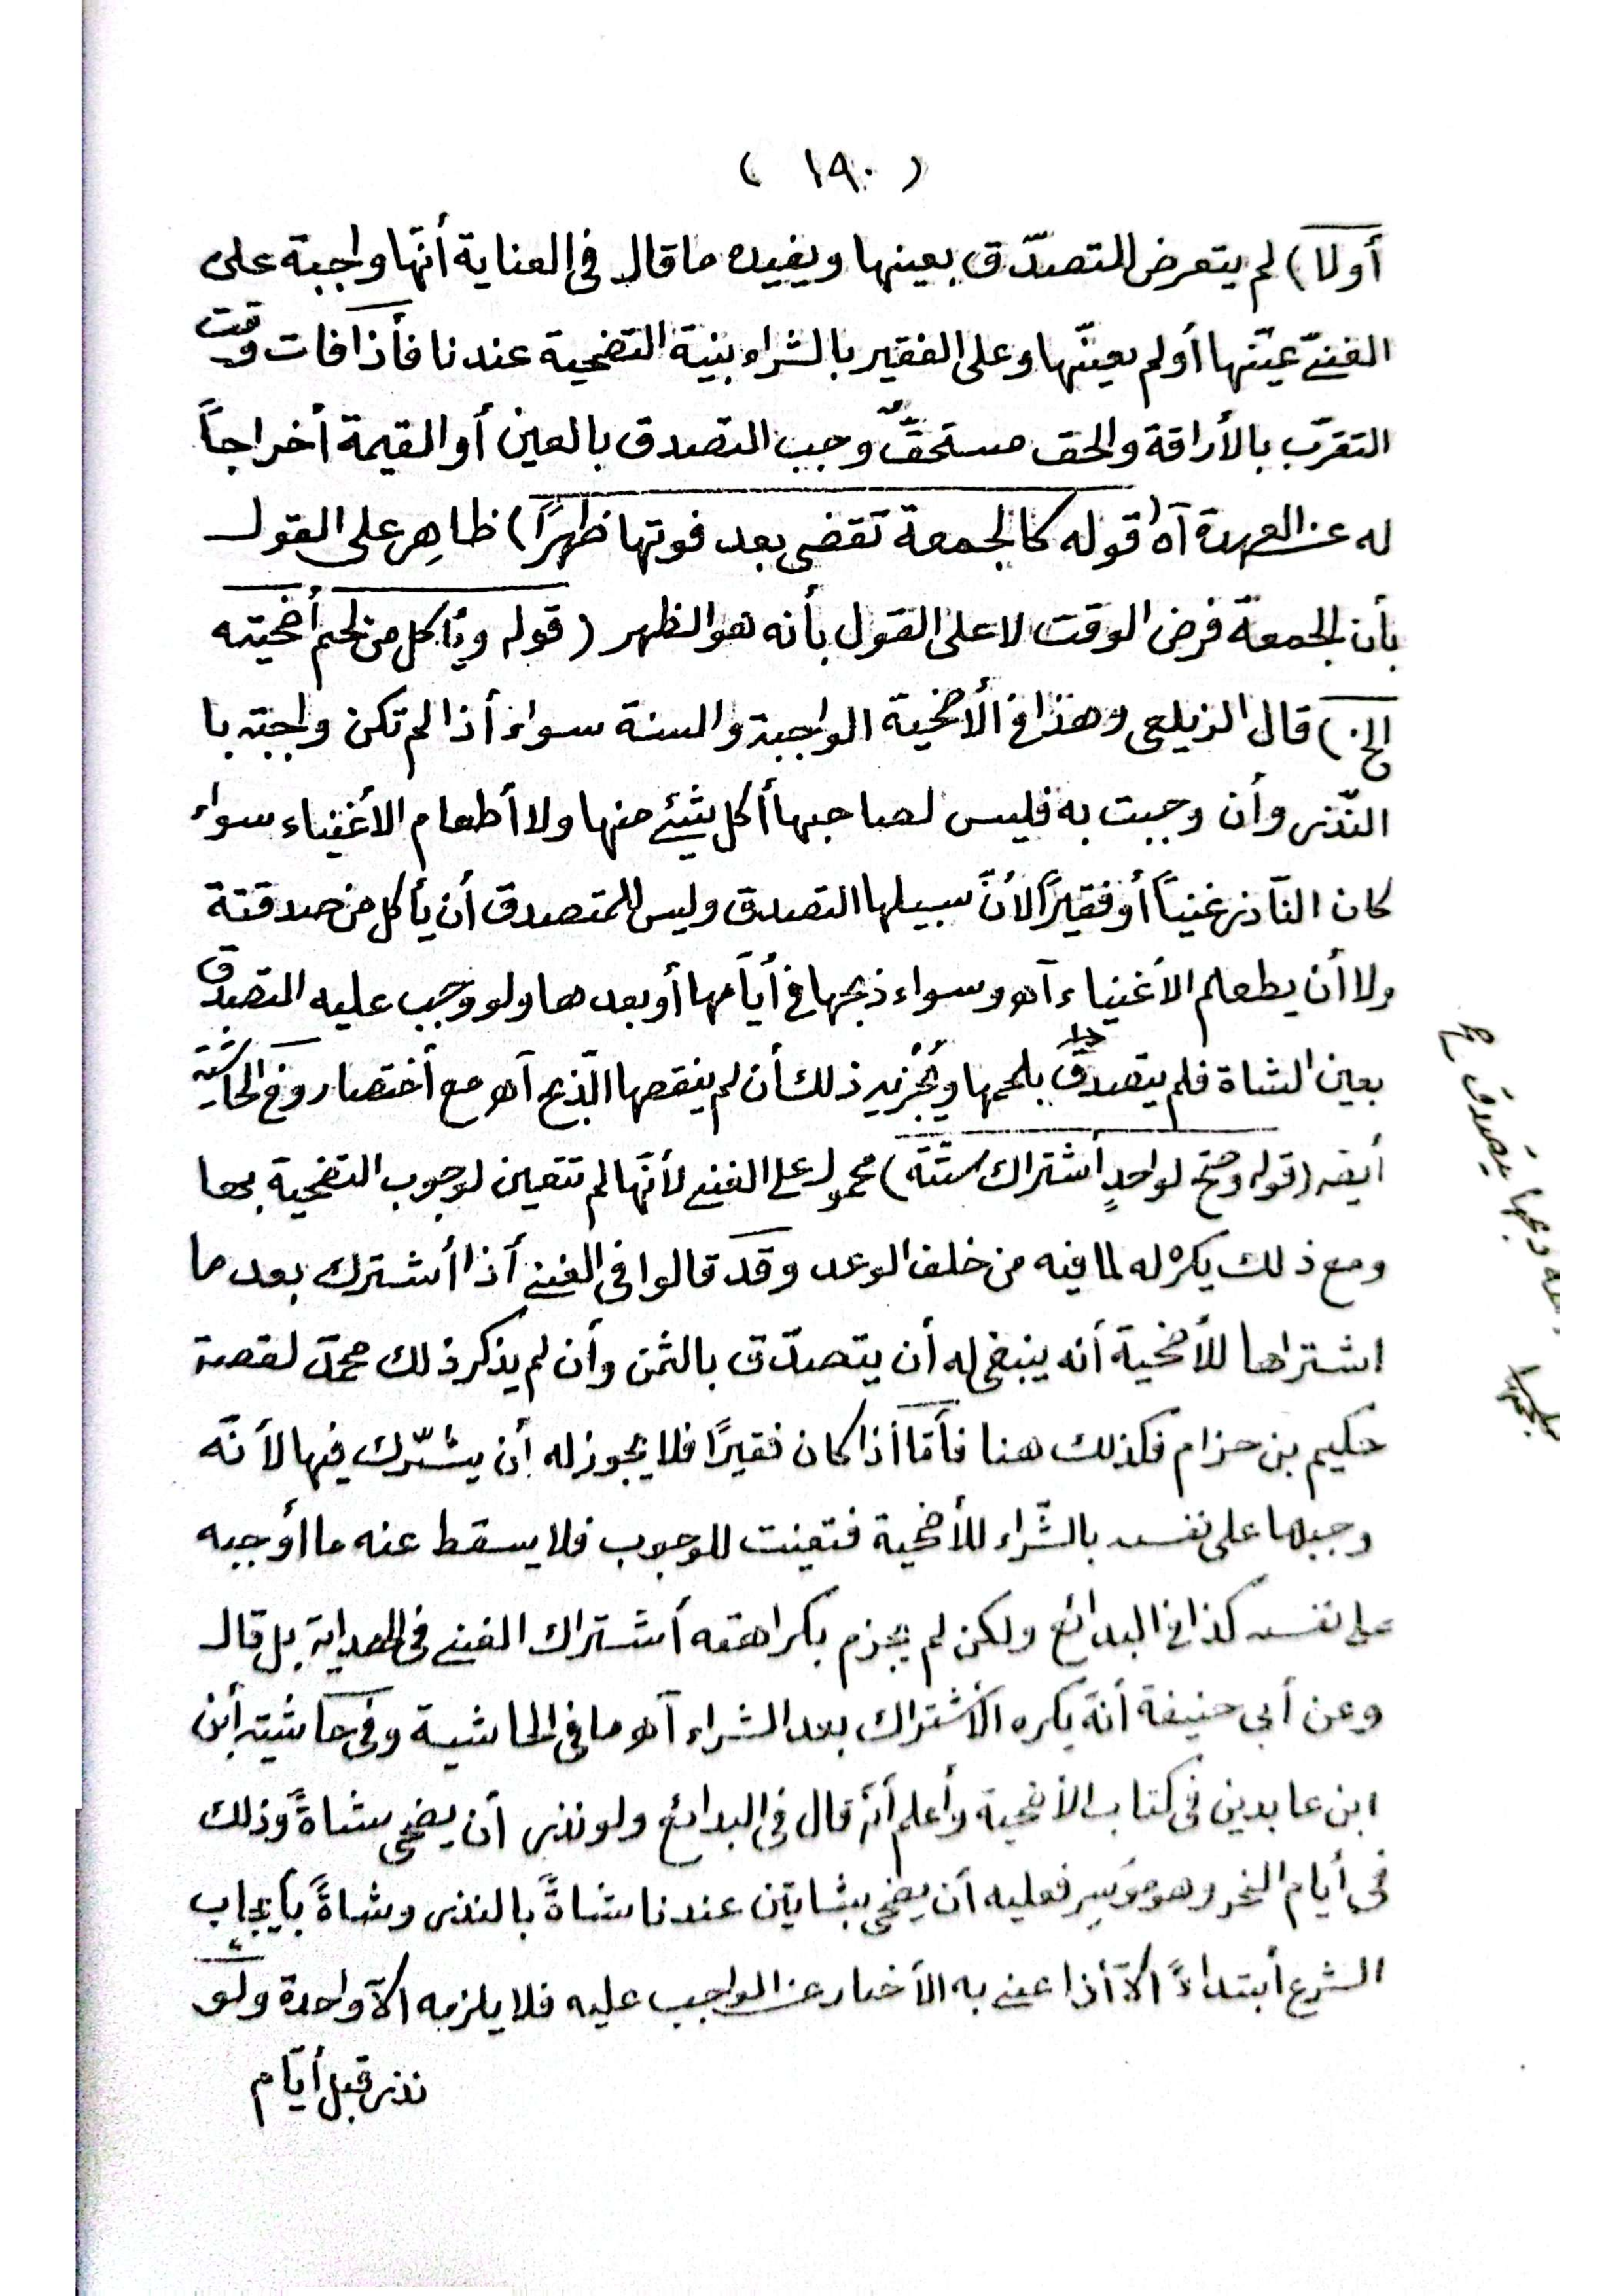 ( ١٩٠ )
أولا) لم يتعرض للتصدّق بعينها ويفيده ما قال في العناية أنّها واجبة على
الغنيّ عيّنها أو لم يعينّها وعلى الفقير بالشراء بنية التضحية عندنا فأذا فات وقت
التقرّب بالأراقة والحق مستحقٌّ وجب التصدق بالعين أو القيمة أخراجاً
له عن العهدة آه (قوله كالجمعة تقضى بعد فوتها ظهرًا) ظاهر على القول
بأن الجمعة فرض الوقت لا على القول بأنه هو الظهر (قوله ويأكل من لحم أضحيته
الخ) قال الزيلعى وهذا فى الأضحية الواجبة والسنة سواء أذا لم تكن واجبة با
النّذر وأن وجبت به فليس لصاحبها أكل شيئ منها ولا أطعام الأغنياء سواء
كان النّاذر غنياً أو فقيرًا لأنّ سبيلها التصدق وليس للمتصدق أن يأكل من صدقتة
ولا أن يطعم الأغنياء آه وسواء ذبحها فى أيّامها أو بعدها ولو وجب عليه التصدق
بعين الشاة فلم يتصدق بلحمها ويُجْزيه ذلك أن لم ينقصها الذّبح آه مع أختصار وفى الحاشية
أيضه (قوله وصحّ لواحدٍ أشتراك ستّة) محمول على الغنى لأنّها لم تتعين لوجوب التضحية بها
ومع ذلك يكره له لما فيه من خلف الوعد وقد قالوا فى الغنى أذا أشترك بعد ما
اشتراها للأضحية أنه ينبغى له أن يتصدّق بالثمن وأن لم يذكر ذلك محمّد لقصة
حكيم بن حزام فكذلك هنا فأمّا أذا كان فقيرًا فلا يجوز له أن يشرّك فيها لأنّه
وجبها على نفسه بالشّراء للأضحية فتعينت للوجوب فلا يسقط عنه ما أوجبه
على نفسه كذا فى البدائع ولكن لم يجزم بكراهته أشتراك الغنى فى الهداية بل قال
وعن أبى حنيفة أنّه يكره الأشتراك بعد الشراء آه ما فى الحاشية وفى حاشية أبن
ابن عابدين فى كتاب الأضحية وأعلم أنّه قال فى البدائع ولو نذر أن يضحى شاةً وذلك
فى أيام النحر وهو موسِر فعليه أن يضحى بشاتين عندنا شاةً بالنذر وشاةً بأيجاب
الشرع أبتداءً الّا أذا عنى به الأخبار عن الواجب عليه فلا يلزمه الّا واحدة ولو
نذر قبل أيّام
يتصدق
بلحمها